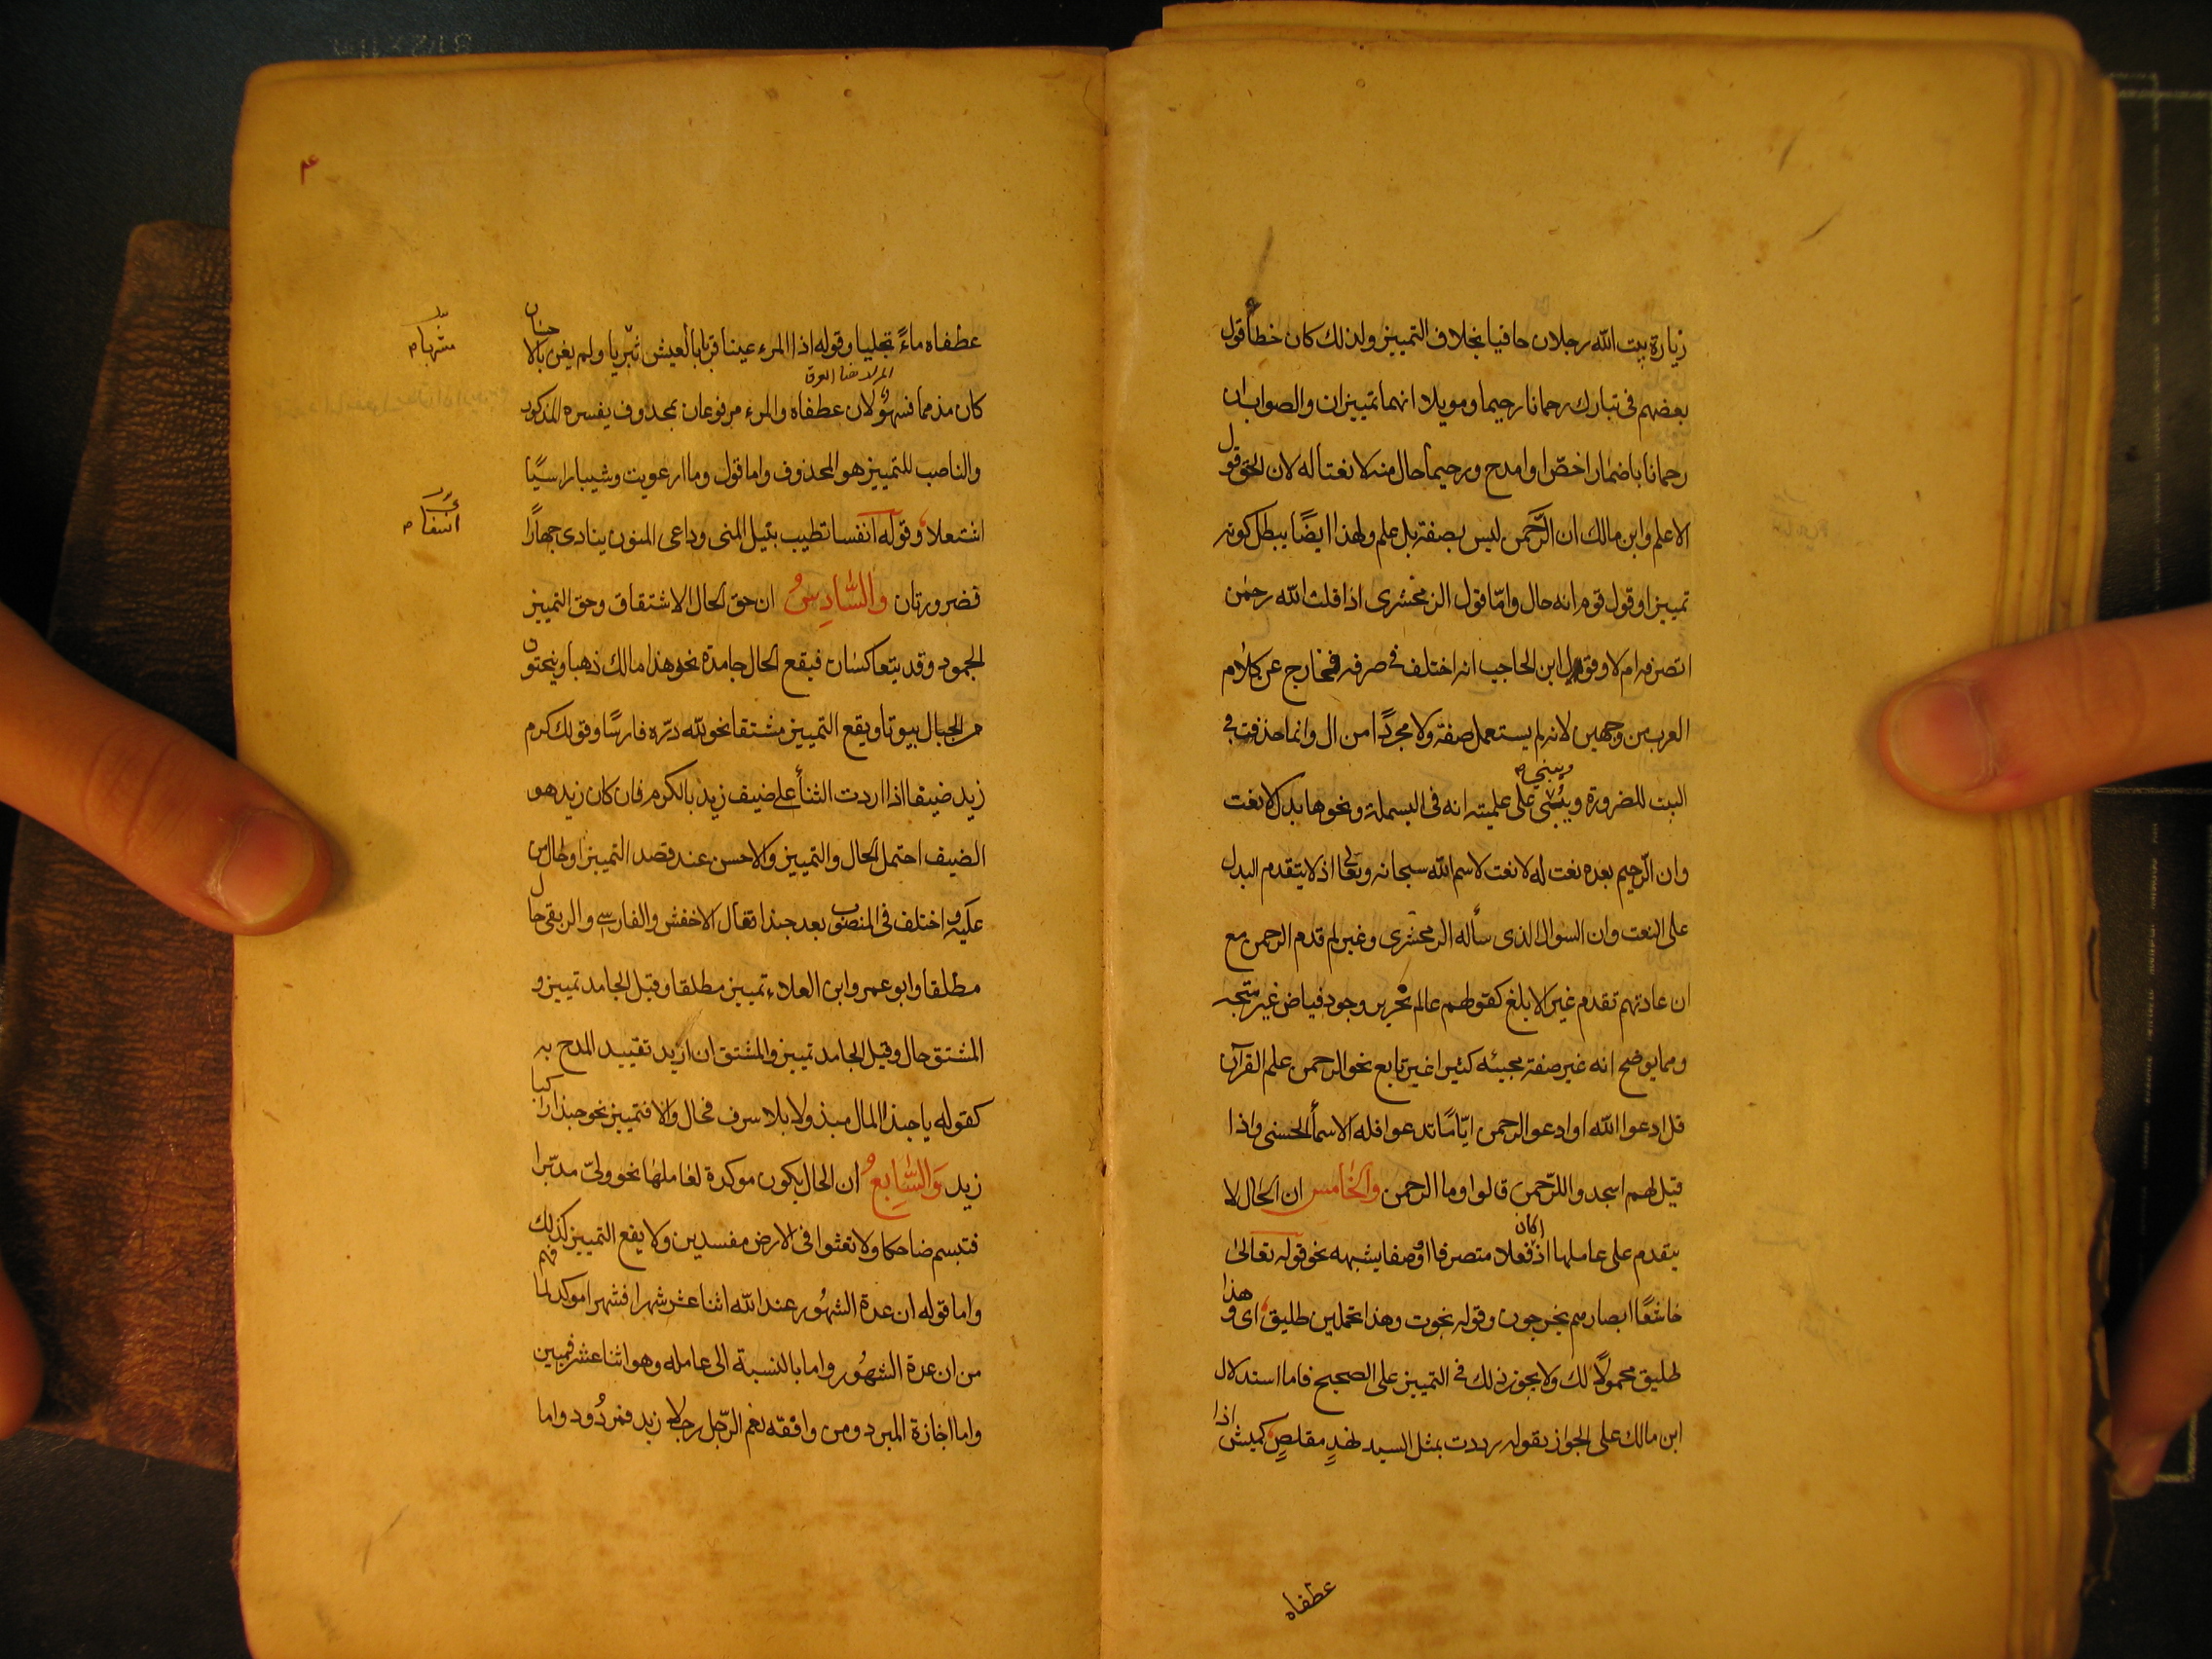 زيارة بيت الله رجلان حافيا بخلاف التمييز ولذلك كان خطأ قول
بعضهم فى تبارك رحمانا رحيما وموئلا انهما تمييزان والصواب ان
رحمانا باضمار اخصّ او امدح ورحيما حال منه لا نعتا له لان الحق قول
الاعلم وابن مالك ان الرَّحمن ليس بصفة بل علم ولهذا ايضًا يبطل كونه
تمييزا وقول قوم انه حال وامّا قول الزمخشرى اذا قلت الله رحمن
اتصرفه ام لا وقول ابن الحاجب انه اختلف فى صرفه فخارج عن كلام
العرب من وجهين لانه لم يستعمل صفة ولا مجردًا من ال وانما حذفت فى
ويبنى م
البيت للضرورة ويبنى على علميته انه فى البسملة ونحوها بدل لا نعت
وان الرّحيم بعده نعت له لا نعت لاسم الله سبحانه وتعالى اذ لا يتقدم البدل
على النعت وان السوال الذى سأله الزمخشرى وغيره لم قدم الرحمن مع
ان عادتهم تقدم غير الابلغ كقولهم عالم نحرير وجود فياض غير متجه
ومما يوضح انه غير صفة مجيئه كثيرا غير تابع نحو الرحمن علم القرآن
قل ادعوا الله او ادعوا الرحمن ايّامّا تدعوا فله الاسمأ الحسنى واذا
قيل لهم اسجدوا للرّحمن قالوا وما الرحمن والخامس ان الحال لا
يتقدم على عاملها اذ كان فعلا متصرفا او وصفا يشبهه نحو قوله تعالى
خاشعًا ابصارهم يخرجون وقوله نجوت وهذا تحملين طليق اى وهذا
طليق محمولاً لك ولا يجوز ذلك فى التمييز على الصحيح فاما استدلال
ابن مالك على الجواز بقوله رددت بمثل السيد نهدٍ مقلصٍ كميش اذا
عطفاه
٤
عطفاه ماءً تحلبا وقوله اذا المرء عينا قرّ بالعيش مثريا ولم يعن بالاحسان
كان مذمما فسهو لان عطفاه والمرء مرفوعان بمحذوف يفسره المذكور
والناصب للتمييز هو المحذوف واما قول وما ارعويت وشيبا راسيًا
اشتعلا وقوله انفسا تطيب بنيل المنى وداعى المنون ينادى جهارًا
فضرورتان والسّادسُ ان حق الحال الاشتقاق وحق التمييز
الجمود وقد يتعاكسان فيقع الحال جامدة نحو هذا مالك ذهبا وينحتون
من الجبال بيوتا ويقع التمييز مشتقا نحو لله درّه فارسًا وقولك كرم
زيد ضيفا اذا اردت الثنأ على ضيف زيد بالكرم فان كان زيد هو
الضيف احتمل الحال والتمييز والاحسن عند قصد التمييز ادخال من
عليه واختلف فى المنصوب بعد حبذا فقال الاخفش والفارسى والربعى حال
مطلقا وابو عمرو ابن العلاء تمييز مطلقا وقيل الجامد تمييز و
المشتق حال وقيل الجامد تمييز والمشتق ان اريد تقييد المدح به
كقوله يا حبذا المال مبذولا بلا سرف فحال والا فتمييز نحو حبذا راكبا
زيد وَالسَّابعُ ان الحال يكون موكدة لعاملها نحو ولىّ مدبّرا
فتبسم ضاحكا ولا تعثوا فى الارض مفسدين ولا يقع التمييز كذلك
واما قوله ان عدة الشهُور عند الله اثنا عشر شهرا فشهرا موكد لما فهم
من ان عدة الشهُور واما بالنسبة الى عامله وهو اثنا عشر فمبين
واما اجازة المبرد ومن وافقه نعم الرّجل رجلا زيد فمردُود واما